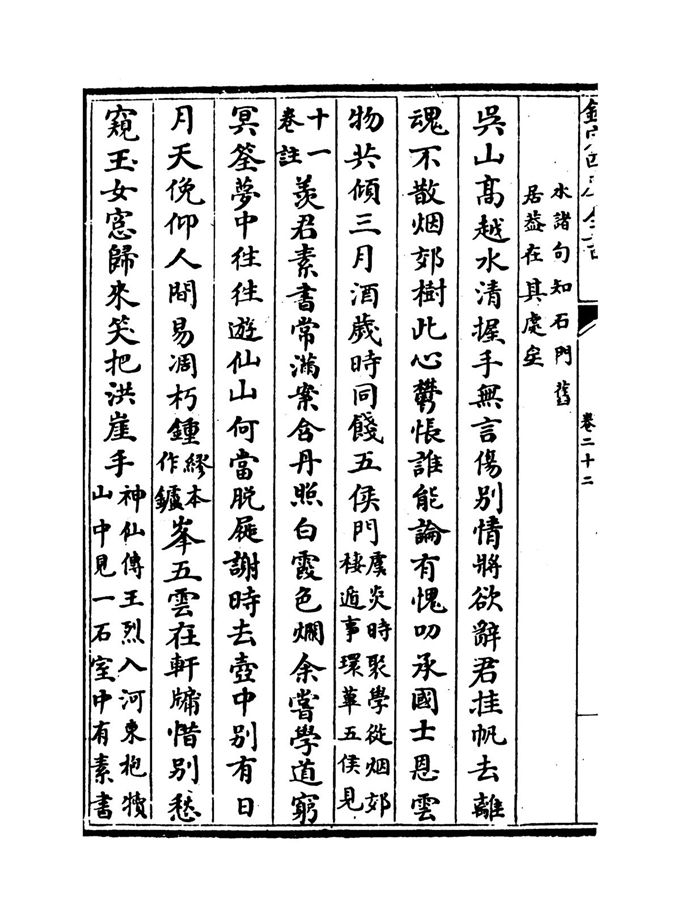 欽定四庫全書
卷二十二
水諸句知石門舊
居葢在其處矣
吳山髙越水清握手無言傷别情將欲辭君挂帆去離
魂不散烟郊樹此心鬱悵誰能論有愧叨承國士恩雲
物共傾三月酒歲時同餞五侯門虞炎時聚學從烟郊棲遁事環蓽五侯見
十一卷註羨君素書常滿案含丹照白霞色爛余嘗學道窮
冥筌夢中往往遊仙山何當脱屣謝時去壺中别有日
月天俛仰人間易凋朽鍾繆本作鑪峯五雲在軒牖惜别愁
窺玉女窓歸來笑把洪崖手神仙傳王烈入河東抱犢山中見一石室中有素書